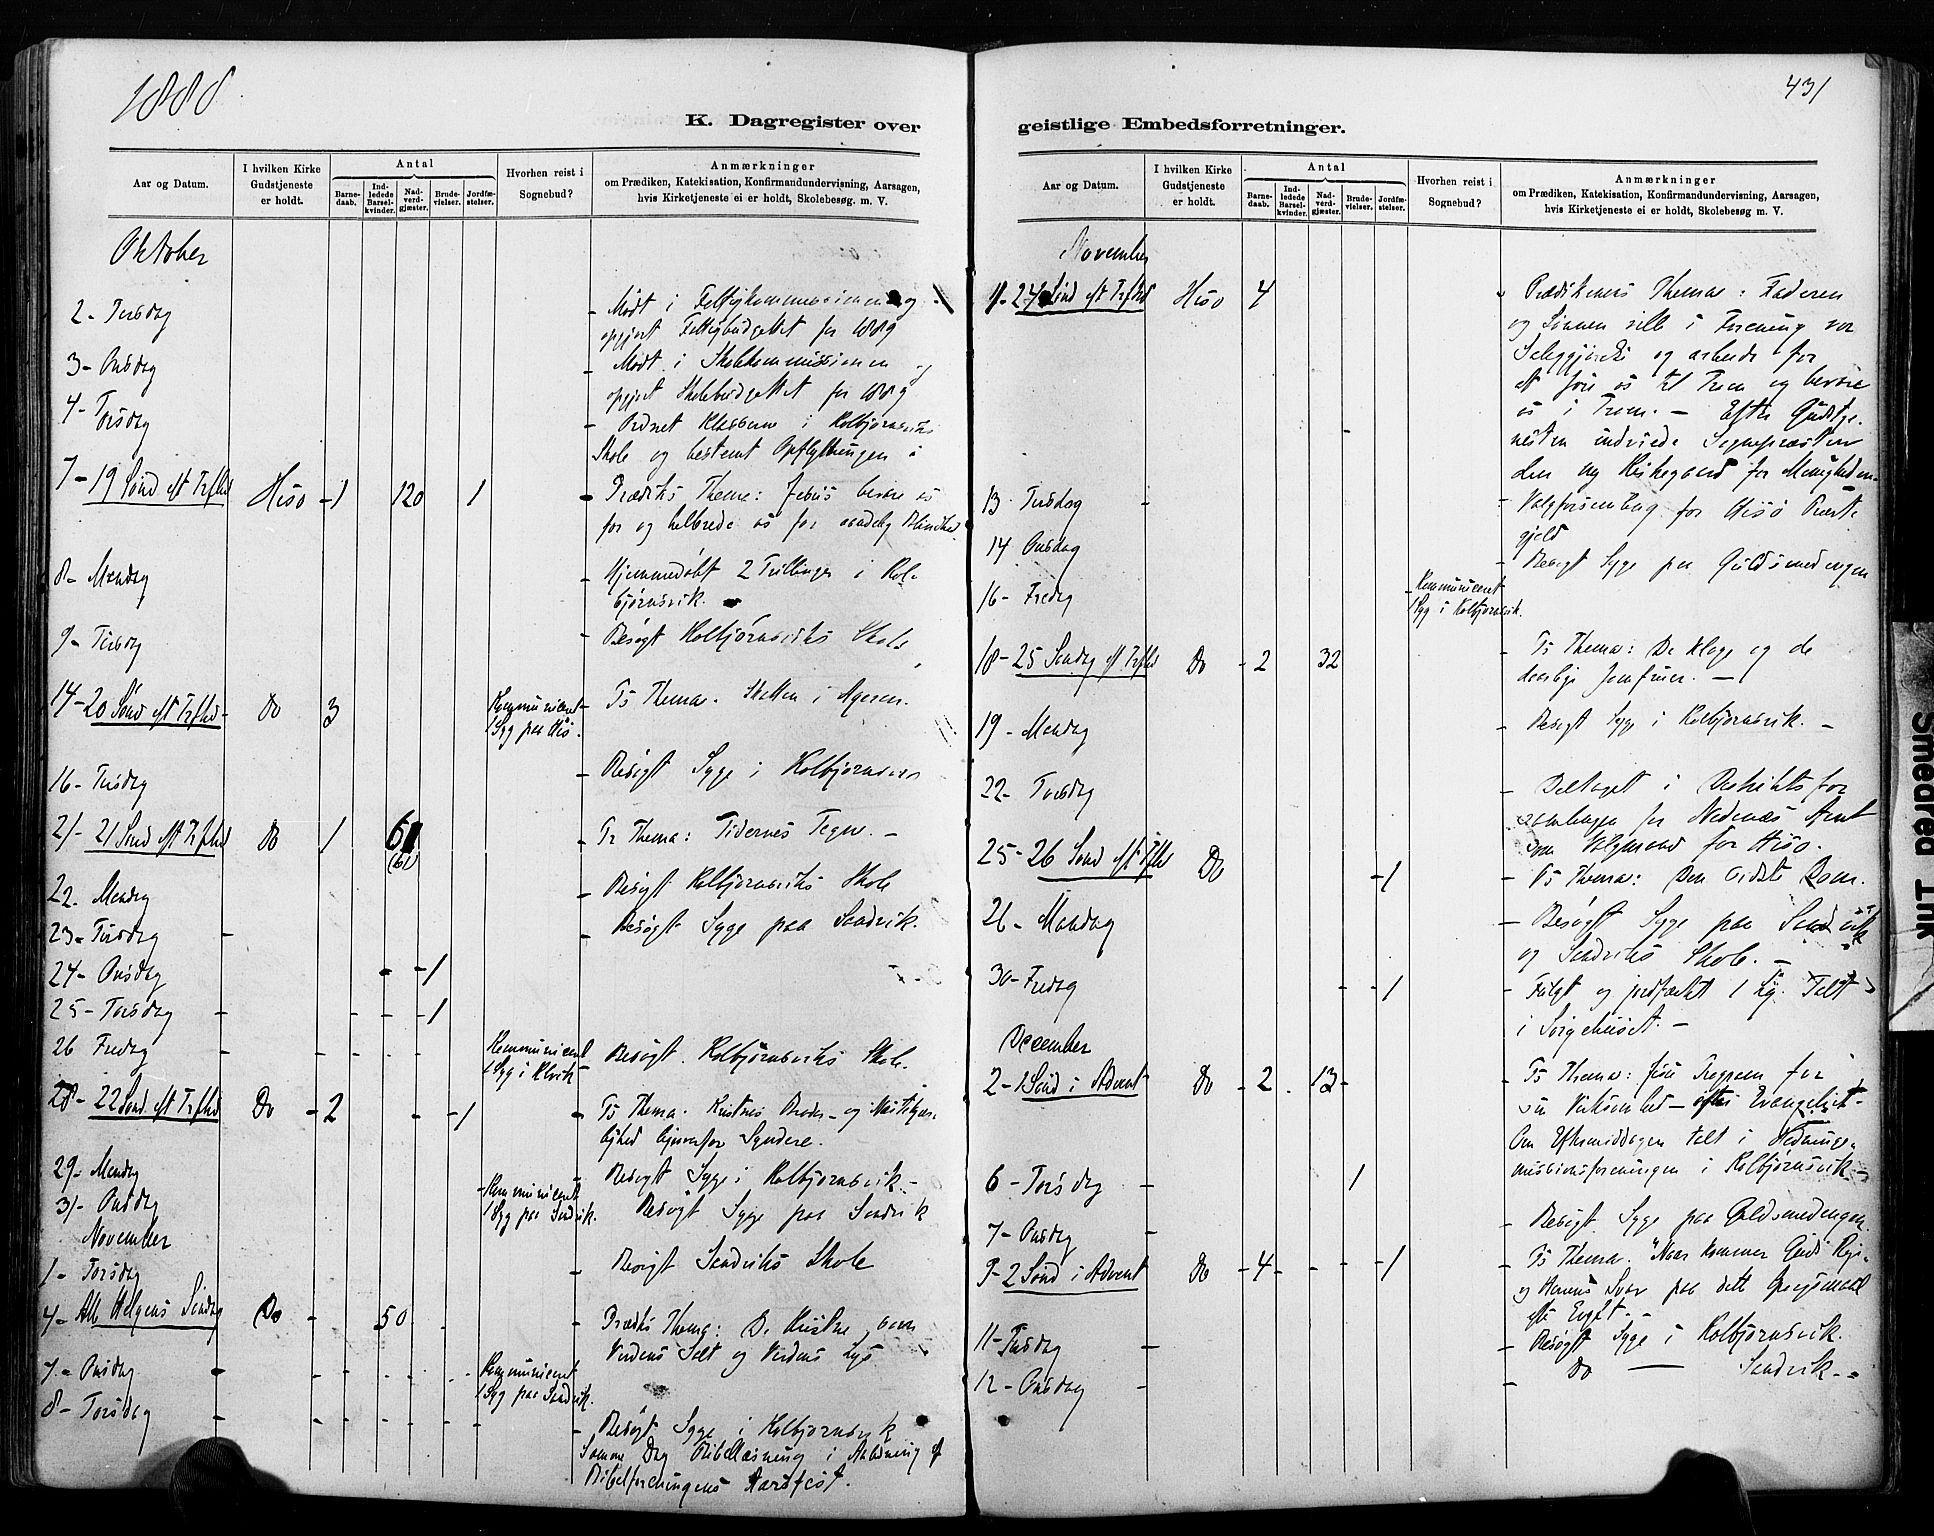 1888
K. Dagregister over
Aar og Datum.
I hvilken Kirke Gudstjeneste er holdt.
Antal
Barnedaab.
Indledede Barselkvinder.
Nadverdgjæster.
Brudevielser.
Jordfæstelser.
Hvorhen reist i Sognebud?
Anmærkninger
om Prædiken, Katekisation, Konfirmandundervisning, Aarsagen,
hvis Kirketjeneste ei er holdt, Skolebesøg. m. V.
Oktober
2 - Tirsdag - Mødt i Fattigkommissionen og
opgjort Fattigbudgettet for 1889
3 - Onsdag - Mødt i Skolekommissionen og
opgjort Skolebudgettet for 1889
4 - Torsdag - Ordnet Klasserne i Kolbjørnsviks
Skole og bestemt Opflytningen i
7 - 19 Sønd eft Trefhd Hisø - 1 120 1 - Prædiks Thema: Jesus bevare os
for og helbrede os for aandelig Blindhed
8 - Mandag - Hjemmedøbt 2 Tvillinger i Kol-
bjørnsvik.
9 - Tirsdag - Besøgt Kolbjørnsviks Skole
14 - 20 Sønd eft Trefhd - Do 3 Kommunicent
1 Syg paa Hisø. - Ps Thema. Skatten i Ageren.
16 - Tirsdag - Besøgt Syge i Kolbjørnsvik
21 - 21 Sønd eft Trefhd Do 1 61
(61) - Pr Thema: Tidernes Tegn. -
22. Mandag - Besøgt Kolbjørnsviks Skole
23 - Tirsdag - - Besøgt Syge paa Sandvik.
24 - Onsdag - - 1
25 - Torsdag - - - - 1
26 Fredag - - - - Kommunicent
1 Syg i Kbvik - Besøgt Kolbjørnsviks Skole.
28 - 22 Sønd eft Trefhd Do - 2 - - 1 - Ps Thema. Kristnes Broder- og Næstekjær-
lighed ligeoverfor Syndere.
29 - Mandag - Besøgt Syge i Kolbjørnsvik -
31 - Onsdag - Kommunicent
1 Syg paa Sandvik. Besøgt Syge paa Sandvik
November
1 - Torsdag - Besøgt Sandviks Skole
4 - Alle Helgens Søndag Do - 50 - - Prædiks Thema: De Kristne som
Verdens Salt og Verdens Lys
7 - Onsdag - - - - - Kommunicent
1 Syg paa Sandvik.
8 - Torsdag - - - - - Besøgt Syge i Kolbjørnsvik
Samme Dag Bibellæsning i Anledning af
Bibelforeningens Aarsfest.
431
geistlige Embedsforretninger.
Aar og Datum.
I hvilken Kirke Gudstjeneste er holdt.
Antal
Barnedaab.
Indledede Barselkvinder.
Nadverdgjæster.
Brudevielser.
Jordfæstelser.
Hvorhen reist i Sognebud?
Anmærkninger
om Prædiken, Katekisation, Konfirmandundervisning, Aarsagen,
hvis Kirketjeneste ei er holdt, Skolebesøg m. V.
November
11 - 24 Sønd eft Trefhd Hisø 4 Prædikenens Thema: Faderen
og Sønnen ville i Forening vor
Saliggjørelse og arbeide for
at føre os til Troen og bevare
os i Troen. - Efter Gudstje-
nesten indviede Sognepræsten
den ny Kirkegaard for Menigheden.
13 Tirsdag - - Valgforsamling for Hisø Præste-
gjeld
14 Onsdag - Besøgt Syge paa Guldsmedengen
16 - Fredag - Kommunicent
1 Syg i Kolbjørnsvik.
18 - 25 Søndag eft Trefhd Do - 2 32 - Ps Thema: De kloge og de
daarlige Jomfruer. -
19 - Mandag - Besøgt Syge i Kolbjørnsvik. -
22 - Torsdag - Deltaget i Distriktsfor-
samlingen for Nedenæs Amt
som Valgmand for Hisø.
25 - 26 Sønd eft Trefhd Do - 1 - Ps Thema: Den sidste Dom.
26 - Mandag - Besøgt Syge paa Sandvik
og Sandviks Skole. -
30 - Fredag - - 1 - Fulgt og jordfæstet 1 Lig. Talt
i Sørgehuset. -
December
2 - 1 Sønd i Advent Do - 2 . 13 - - Ps Thema: Jesu Program for
sin Virksomhed - efter Evangeliet -
Om Eftermiddagen talt i Hedninge-
missionsforeningen i Kolbjørnsvik -
6 - Torsdag - - 1
7 - Onsdag - - Besøgt Syge paa Guldsmedengen
9 - 2 Sønd i Advent Do - 4 - - - 1 - Ps Thema. "Naar kommer Guds Rige"
og Herrens Svar paa dette Spørgsmaal
11 - Tirsdag - - Besøgt Syge i Kolbjørnsvik.
12 - Onsdag - - Do — Sandvik. -
Smeared Ink